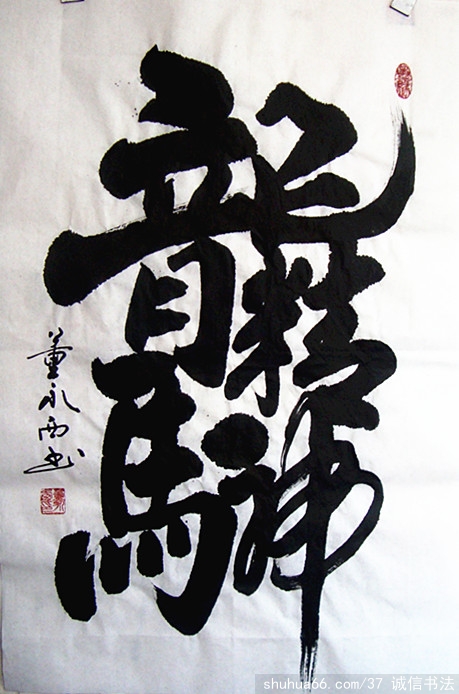 龍馬精神
董永西书
shuhua66.com/37 诚信书法